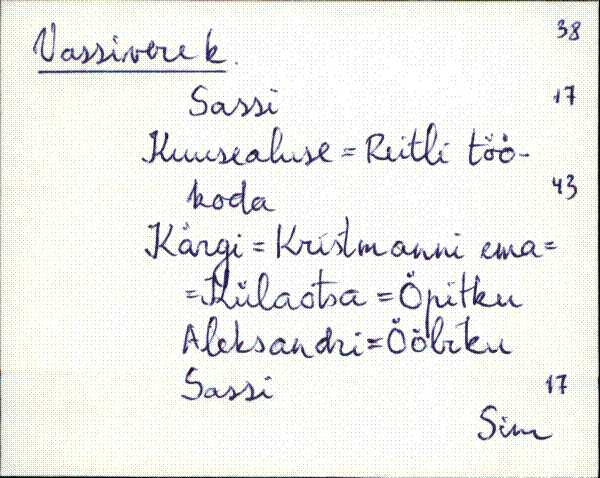 38
Vassivere k.
Sassi 17
Kuusealuse = Reitli töö-
koda 43
Kärgi = Kristmanni ema =
= Külaotsa = Öpitku
Aleksandri = Ööbiku
Sassi 17
Sim